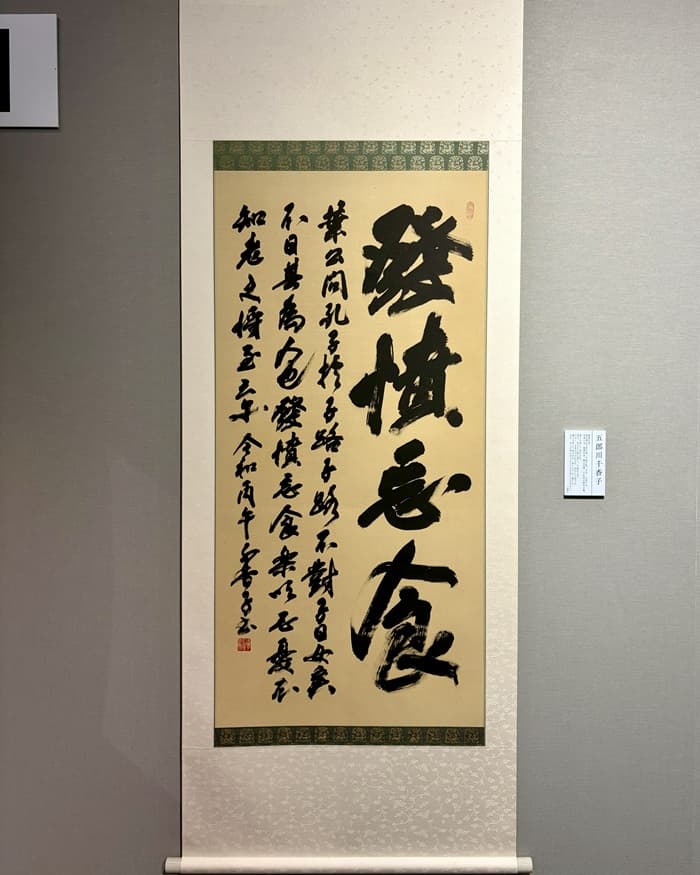 發憤忘食
葉公問孔子於子路子路不對子曰女奚
不曰其為人也發憤忘食樂以忘憂不
知老之將至云尓 令和丙午 千香子書
五郎川千香子